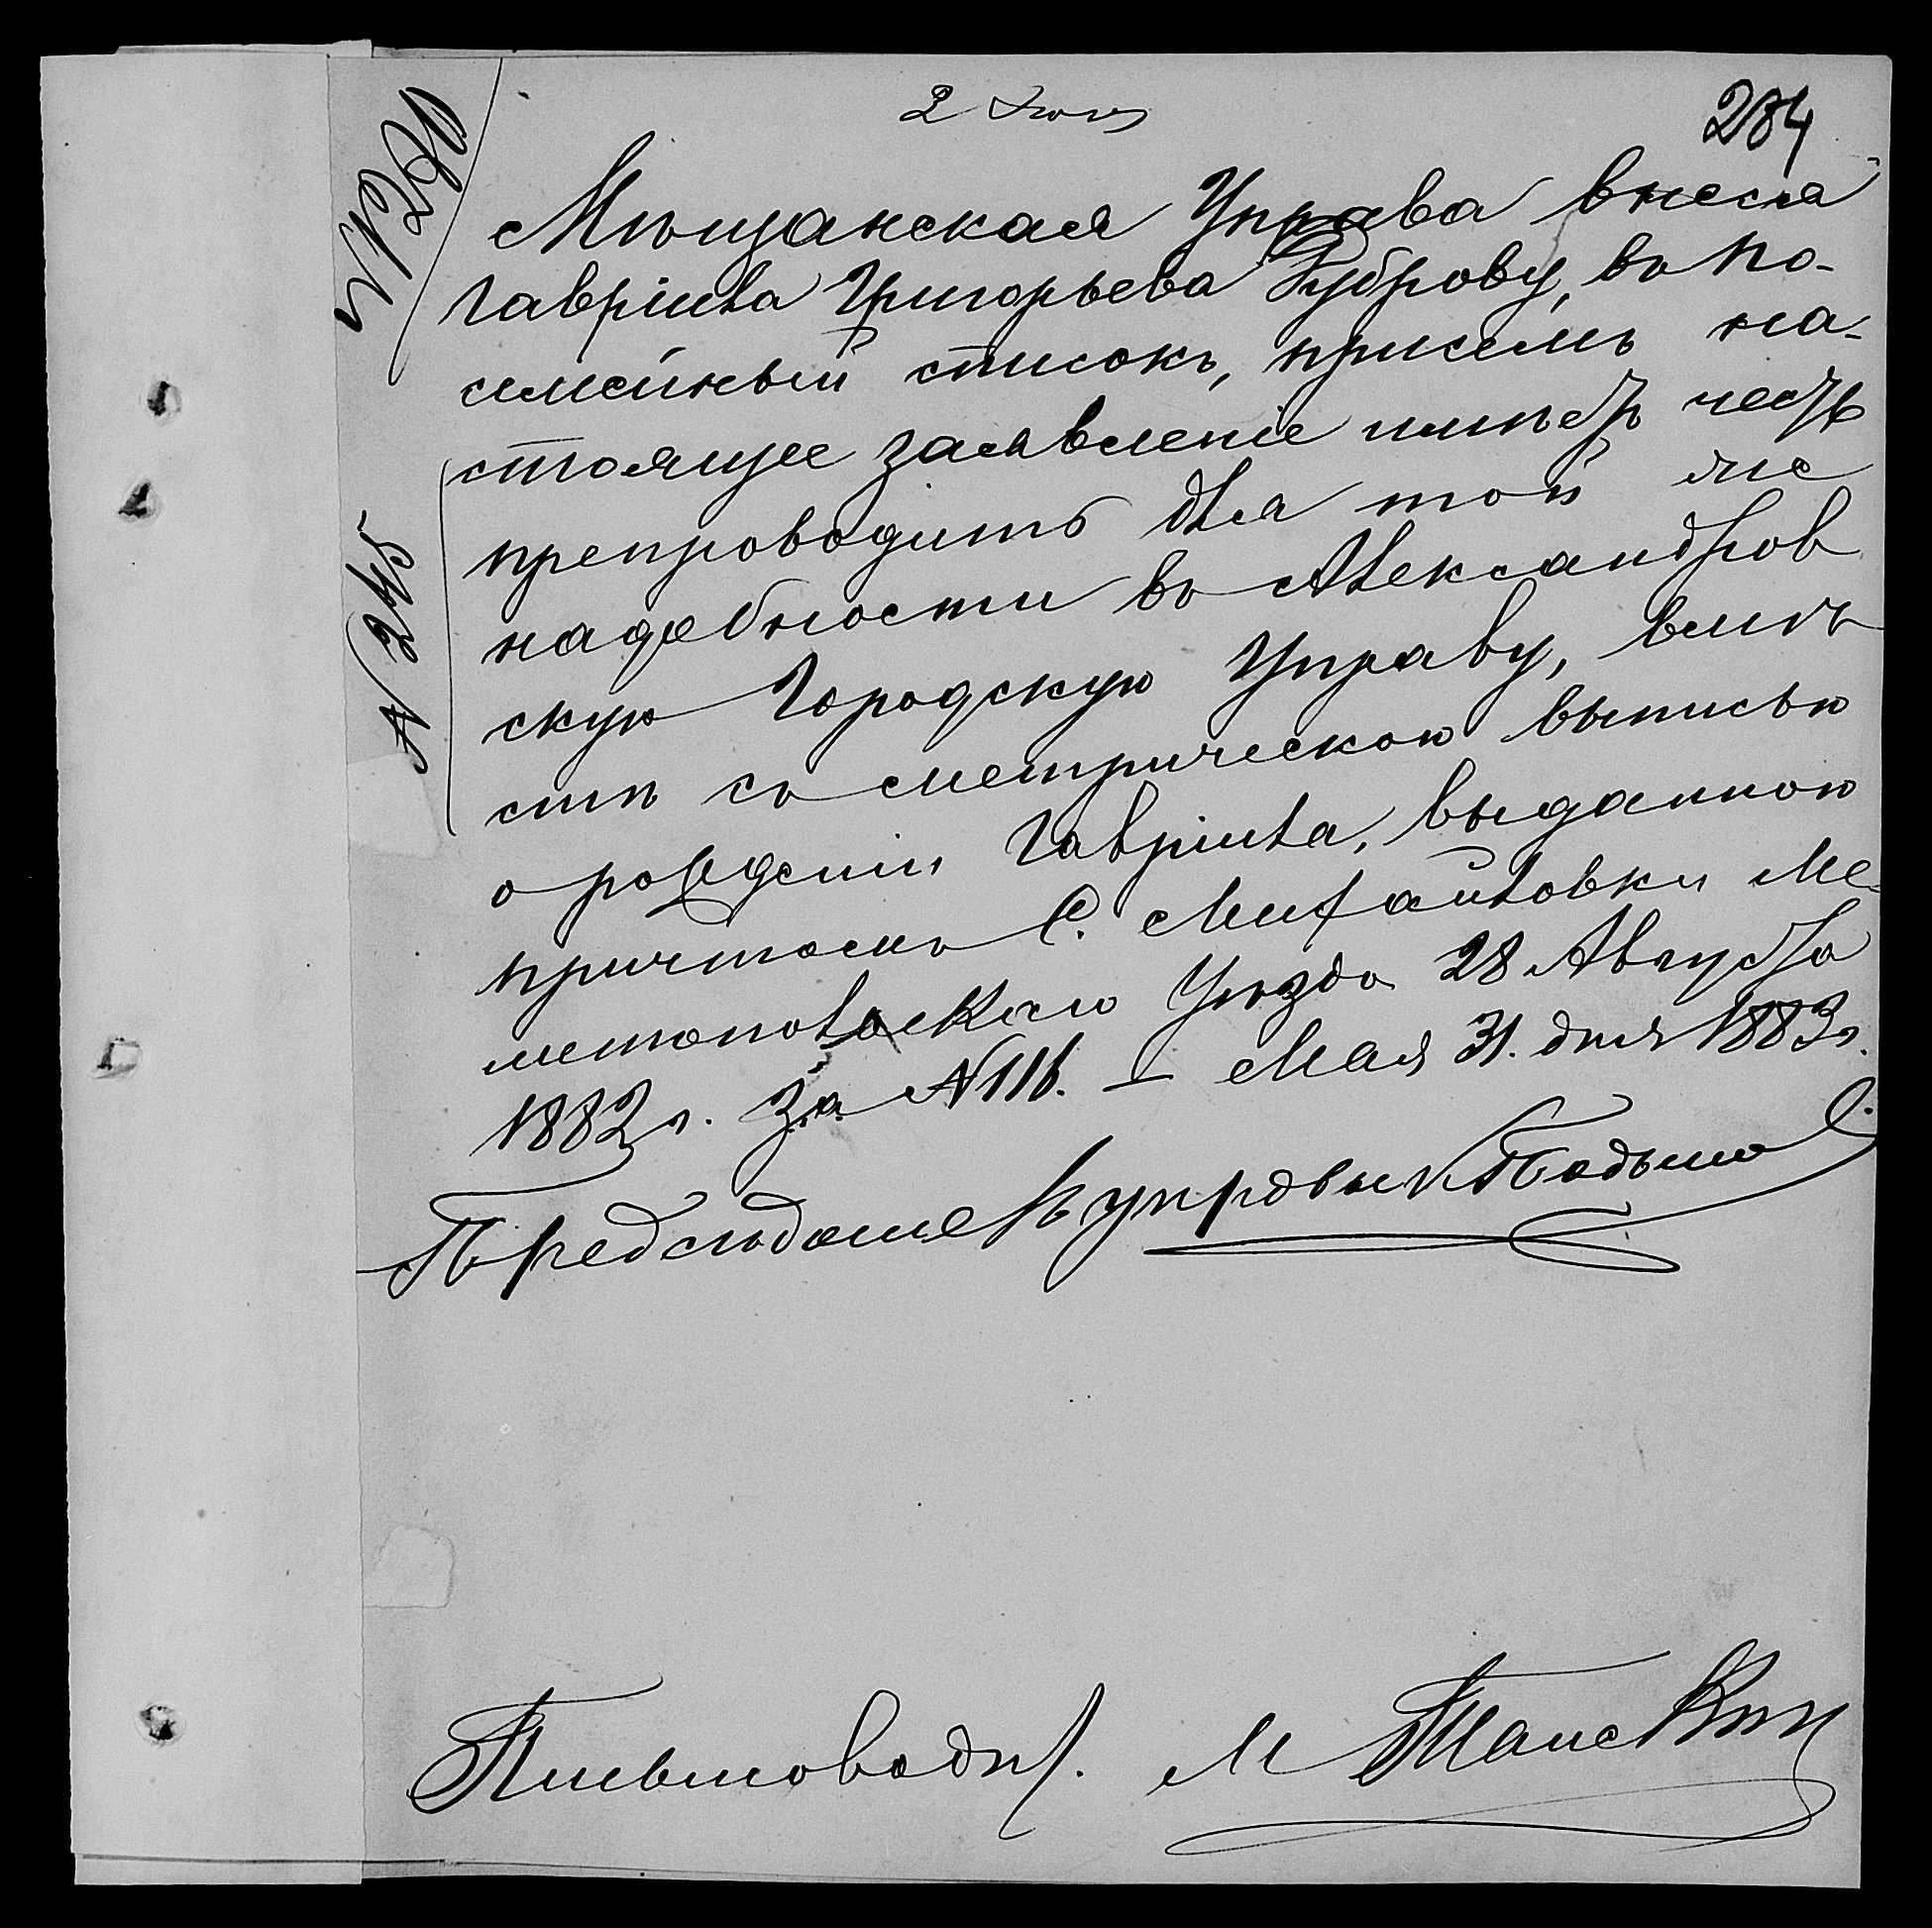 2 Іюня
284
№ 1270
№ 245
Мѣщанская Управа внеся
Гавріила Григорьева Буброву, въ по-
семейный списокъ, присемъ на-
стоящее заявленіе имѣетъ честь
препроводить для той же
надобности въ Александров
скую Городскую Управу, вмѣ
стѣ съ метрическою выписью
о рожденіи Гавріила, выданною
причтомъ С. Михайловки Ме-
литопольскаго Уѣзда 28 Августа
1882 г. за № 116. — Мая 31. дня 1883 г.
Предсѣдатель управы
Письмовод. М